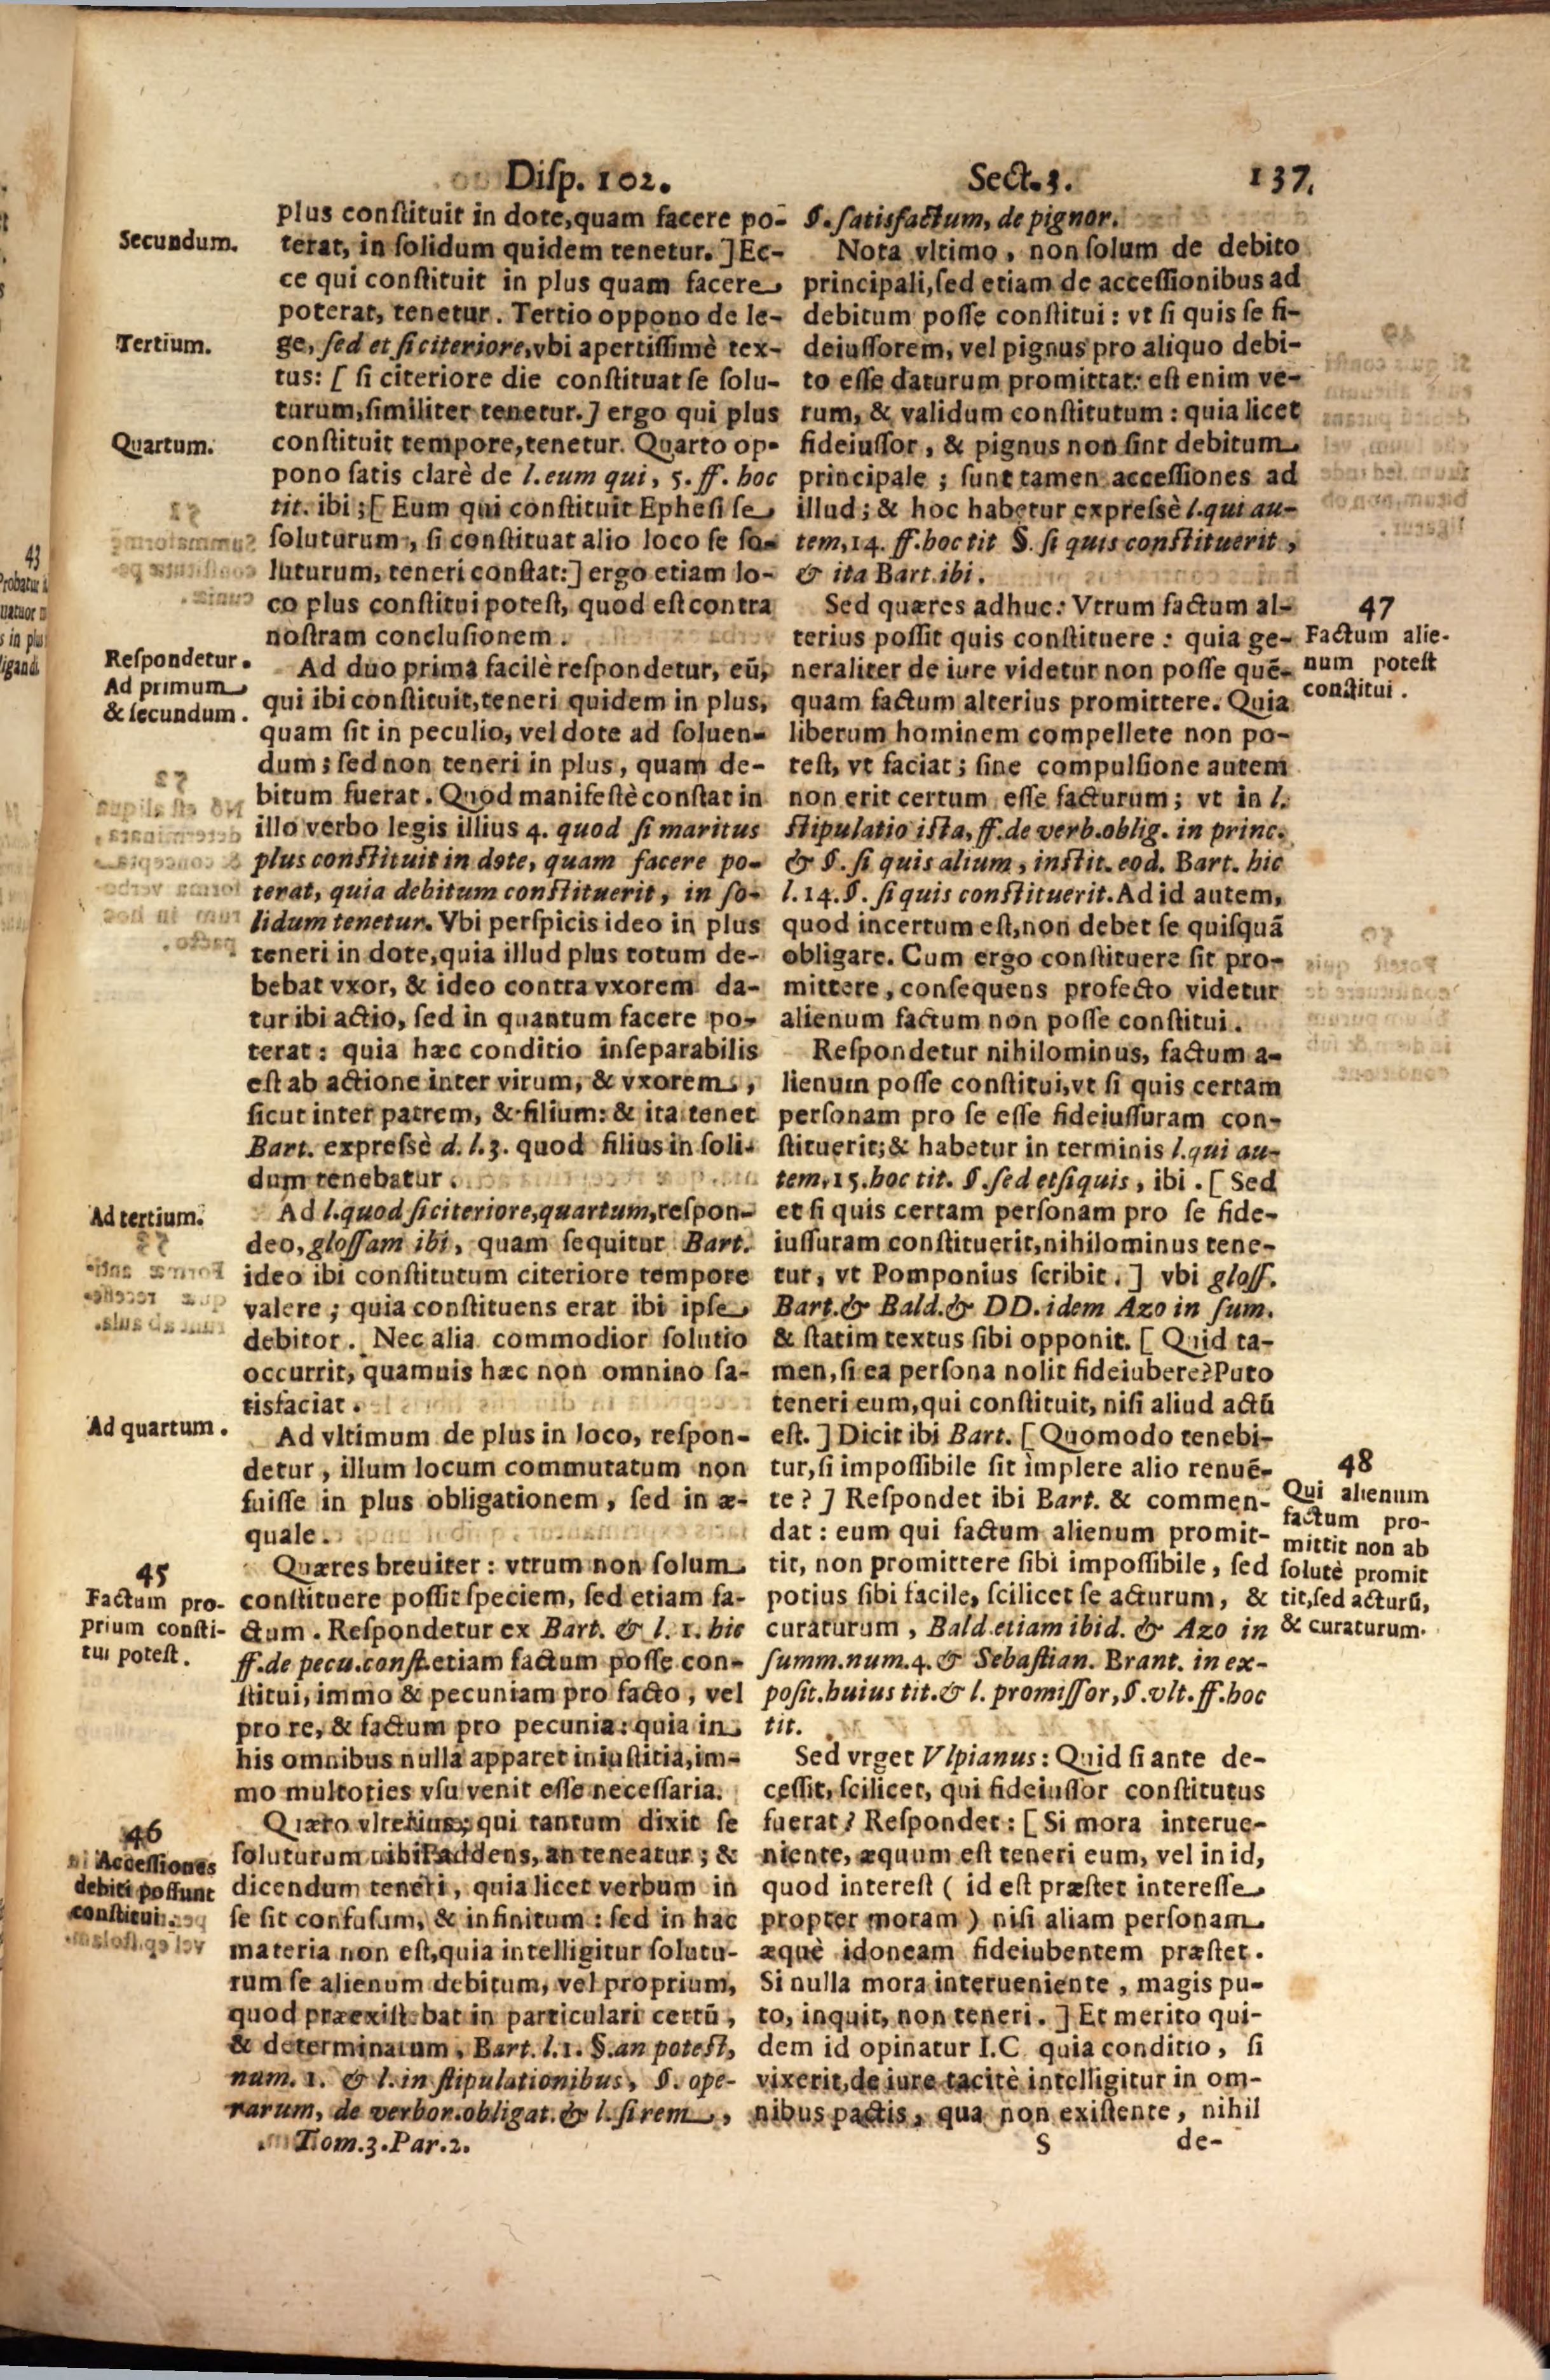 Disp. 102.
Sect. 3.
137.
Secundum.
Tertium.
Quartum.
Respondetur.
Ad primum
& secundum.
Ad tertium.
Ad quartum.
45
Factum pro-
prium consti-
tui potest.
46
Accessiones
debiti possunt
constitui.
plus constituit in dote, quam facere po-
terat, in solidum quidem tenetur.] Ec-
ce qui constituit in plus quam facere
poterat, tenetur. Tertio oppono de le-
ge, sed et si citeriore, vbi apertissimè tex-
tus: [ si citeriore die constituat se solu-
turum, similiter tenetur.] ergo qui plus
constituit tempore, tenetur. Quarto op-
pono satis clarè de l. eum qui, 5. ff. hoc
tit. ibi; [ Eum qui constituit Ephesi se
soluturum, si constituat alio loco se so-
luturum, teneri constat:] ergo etiam lo-
co plus constitui potest, quod est contra
nostram conclusionem.
Ad duo prima facilè respondetur, eũ,
qui ibi constituit, teneri quidem in plus,
quam sit in peculio, vel dote ad soluen-
dum; sed non teneri in plus, quam de-
bitum fuerat. Quod manifestè constat in
illo verbo legis illius 4. quod si maritus
plus constituit in dote, quam facere po-
terat, quia debitum constituerit, in so-
lidum tenetur. Vbi perspicis ideo in plus
teneri in dote, quia illud plus totum de-
bebat vxor, & ideo contra vxorem da-
tur ibi actio, sed in quantum facere po-
terat: quia hæc conditio inseparabilis
est ab actione inter virum, & vxorem,
sicut inter patrem, & filium: & ita tenet
Bart. expressè d. l. 3. quod filius in soli-
dum tenebatur.
Ad l. quod si citeriore, quartum, respon-
deo, glossam ibi, quam sequitur Bart.
ideo ibi constitutum citeriore tempore
valere; quia constituens erat ibi ipse
debitor. Nec alia commodior solutio
occurrit, quamuis hæc non omnino sa-
tisfaciat.
Ad vltimum de plus in loco, respon-
detur, illum locum commutatum non
fuisse in plus obligationem, sed in æ-
quale.
Quæres breuiter: vtrum non solum
constituere possit speciem, sed etiam fa-
ctum. Respondetur ex Bart. & l. 1. hic
ff. de pecu. const. etiam factum posse con-
stitui, immo & pecuniam pro facto, vel
pro re, & factum pro pecunia: quia in
his omnibus nulla apparet iniustitia, im-
mo multoties vsu venit esse necessaria.
Quæro vlterius; qui tantum dixit se
soluturum addens, an teneatur; &
dicendum teneri, quia licet verbum in
se sit confusum, & infinitum: sed in hac
materia non est, quia intelligitur solutu-
rum se alienum debitum, vel proprium,
quod præexistebat in particulari certũ,
& determinatum, Bart. l. 1. §. an potest,
num. 1. & l. in stipulationibus, §. ope-
rarum, de verbor. obligat. & l. si rem,
Tom. 3. Par. 2.
§. satisfactum, de pignor.
Nota vltimo, non solum de debito
principali, sed etiam de accessionibus ad
debitum posse constitui: vt si quis se fi-
deiussorem, vel pignus pro aliquo debi-
to esse daturum promittat: est enim ve-
rum, & validum constitutum: quia licet
fideiussor, & pignus non sint debitum
principale; sunt tamen accessiones ad
illud; & hoc habetur expressè l. qui au-
tem, 14. ff. hoc tit §. si quis constituerit,
& ita Bart. ibi.
Sed quæres adhuc: Vtrum factum al-
terius possit quis constituere: quia ge-
neraliter de iure videtur non posse quẽ-
quam factum alterius promittere. Quia
liberum hominem compellere non po-
test, vt faciat; sine compulsione autem
non erit certum esse facturum; vt in l.
stipulatio ista, ff. de verb. oblig. in princ.
& §. si quis alium, instit. eod. Bart. hic
l. 14. §. si quis constituerit. Ad id autem,
quod incertum est, non debet se quisquã
obligare. Cum ergo constituere sit pro-
mittere, consequens profecto videtur
alienum factum non posse constitui.
Respondetur nihilominus, factum a-
lienum posse constitui, vt si quis certam
personam pro se esse fideiussuram con-
stituerit; & habetur in terminis l. qui au-
tem, 15. hoc tit. §. sed et si quis, ibi. [ Sed
et si quis certam personam pro se fide-
iussuram constituerit, nihilominus tene-
tur, vt Pomponius scribit.] vbi gloss.
Bart. & Bald. & DD. idem Azo in sum.
& statim textus sibi opponit. [ Quid ta-
men, si ea persona nolit fideiubere? Puto
teneri eum, qui constituit, nisi aliud actũ
est.] Dicit ibi Bart. [ Quomodo tenebi-
tur, si impossibile sit ìmplere alio renuẽ-
te? ] Respondet ibi Bart. & commen-
dat: eum qui factum alienum promit-
tit, non promittere sibi impossibile, sed
potius sibi facile, scilicet se acturum, &
curaturum, Bald. etiam ibid. & Azo in
summ. num. 4. & Sebastian. Brant. in ex-
posit. huius tit. & l. promissor, §. vlt. ff. hoc
tit.
Sed vrget Vlpianus: Quid si ante de-
cessit, scilicet, qui fideiussor constitutus
fuerat? Respondet: [ Si mora interue-
niente, æquum est teneri eum, vel in id,
quod interest ( id est præstet interesse
propter moram ) nisi aliam personam
æquè idoneam fideiubentem præstet.
Si nulla mora interueniente, magis pu-
to, inquit, non teneri.] Et merito qui-
dem id opinatur I.C quia conditio, si
vixerit, de iure tacitè intelligitur in om-
nibus pactis, qua non existente, nihil
S
de-
47
Factum alie-
num potest
constitui.
48
Qui alienum
factum pro-
mittit non ab
solutè promit
tit, sed acturũ,
& curaturum.